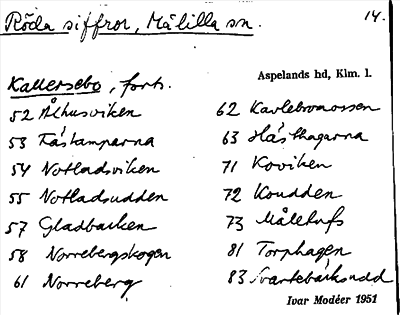 Röda siffror, Målilla sn.
14.
Aspelands hd, Klm. l.
Kallersebo, forts.
52 Ålhusviken
53 Fåstamparna
54 Notladsviken
55 Notladsudden
57 Gladbacken
58 Norrebergskogen
61 Norreberg
62 Karlebromossen
63 Hästhagarna
71 Koviken
72 Koudden
73 Måletufs
81 Torphagen
83 Svartebäcksudd
Ivar Modéer 1951